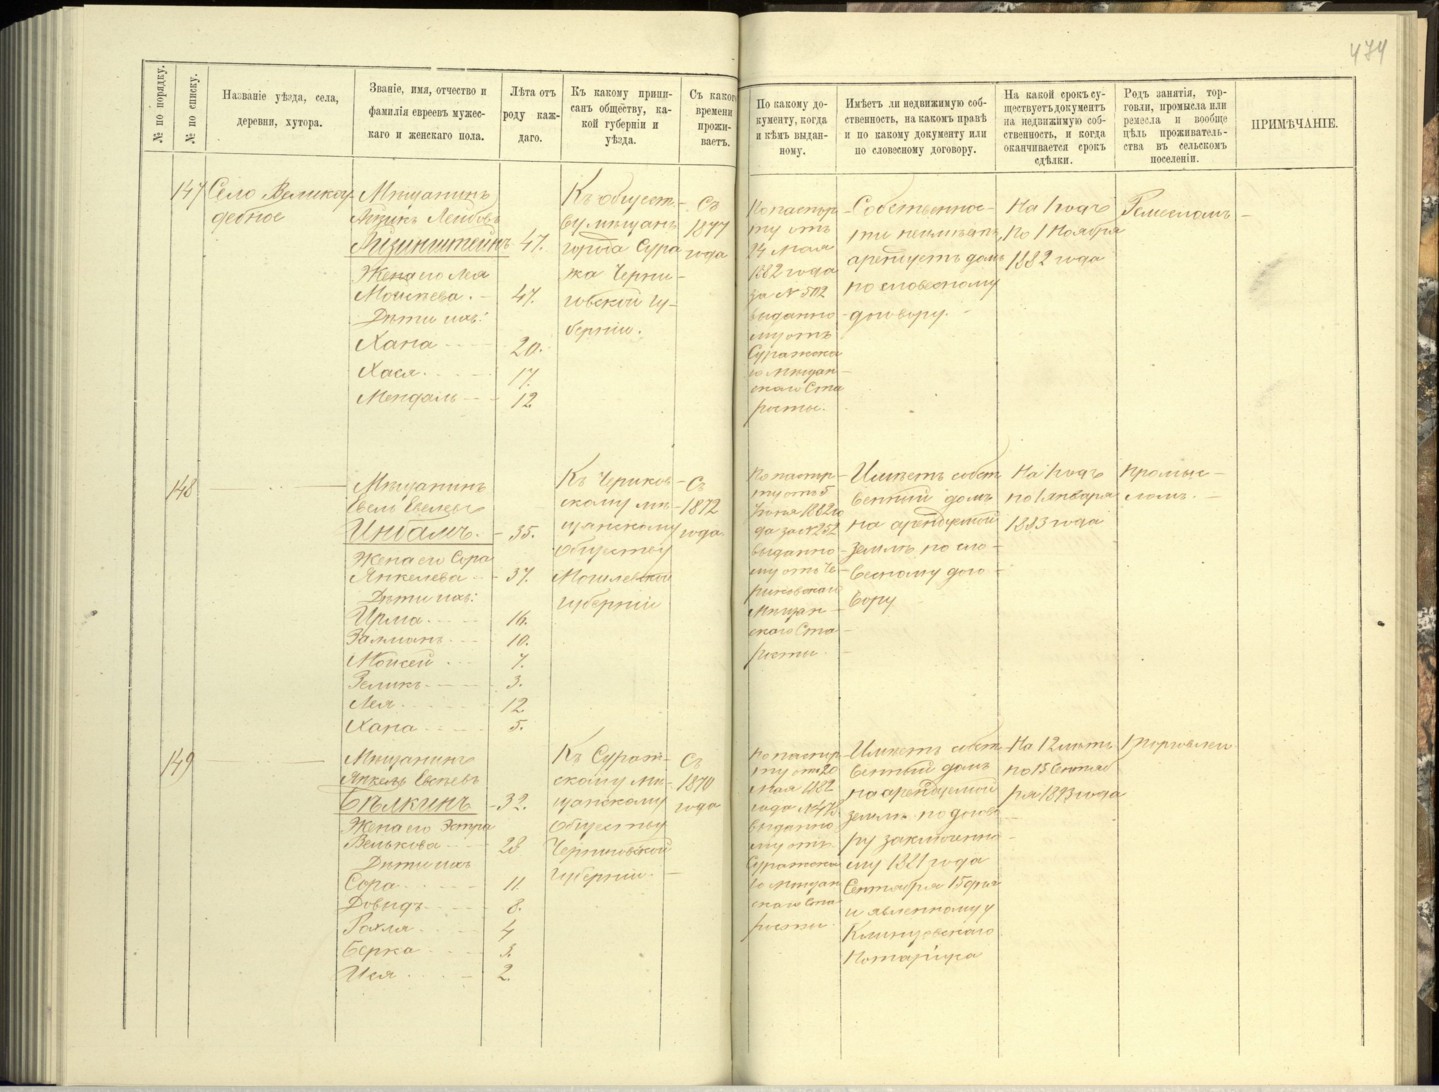 474
№ по порядку.
№ по списку.
Названіе уѣзда, села,
деревни, хутора.
Званіе, имя, отчество и
фамилія евреевъ мужес-
каго и женскаго пола.
Лѣта отъ
роду каж-
даго.
Къ какому припи-
санъ обществу, ка-
кой губерніи и
уѣзда.
Съ какого
времени
прожи-
ваетъ.
По какому до-
кументу, когда
и кѣмъ выдан-
ному.
Имѣетъ ли недвижимую соб-
ственность, на какомъ правѣ
и по какому документу или
по словесному договору.
На какой срокъ су-
ществуетъ документъ
на недвижимую соб-
ственность, и когда
оканчивается срокъ
сдѣлки.
Родъ занятія, тор-
говли, промысла или
ремесла и вообще
цѣль проживатель-
ства въ сельском
поселеніи.
ПРИМѢЧАНІЕ.
147
Село Великоу-
дебное
Мѣщанинъ
Лейбовъ
Айзинштейнъ 47.
Жена его
Моисеева. 47.
Дѣти ихъ:
Хана 20.
Хася. 17.
Мендаль 12
Къ общест-
ву мѣщанъ
города Сура
жа Черни-
говской гу-
берніи.
Съ
1877
года
По паспор
ту отъ
24 Мая
1882 года
за № 502
выданно
му отъ
Суражска
го мѣщан-
скаго Ста
росты.
Собственнос-
ти неимѣетъ,
арендуетъ домъ
по словесному
договору.
На 1 годъ
по 1 Ноября
1882 года
Ремесломъ
148
Мѣщанинъ
Инбамъ. 35.
Жена его Сора
Янкелева 37.
Дѣти ихъ:
Ирма 16.
Залманъ 10.
Моисей 7.
Зеликъ 3.
Лея 12
Хана 5.
Къ Чериков-
скому мѣ-
щанскому
обществу
Могилевской
губерніи
Съ
1872
года
По паспор
ту отъ 5
Іюня 1882 го
да за № 252
выданно
му отъ Че
риковскаго
Мѣщан-
скаго Ста
росты
Имѣетъ собст
венный домъ
на арендуемой
землѣ по сло-
весному дого-
вору
На 1 годъ
по 1 января
1883 года
Промыс-
ломъ.
149
Мѣщанинъ
Янкель Евсеевъ
Бѣлкинъ 32.
Жена его Эстра
Велькова 28
Дѣти ихъ
Сора 11
Довидъ 8.
Рохля 4
Берка 3
Ися 2.
Къ Сураж-
скому мѣ-
щанскому
обществу
Черниговской
губерніи.
Съ
1870
года
По паспор
ту отъ 20
Мая 1882
года № 478
выданно
му отъ
Суражска
го мѣщан
скаго Ста
росты
Имѣетъ собст
венный домъ
на арендуемой
землѣ по догово
ру заключенно
му 1881 года
Сентября 15 дня
и явленному у
Клинцовскаго
Нотаріуса
На 12 лѣтъ
по 15 Сентяб
ря 1893 года
Торговлею